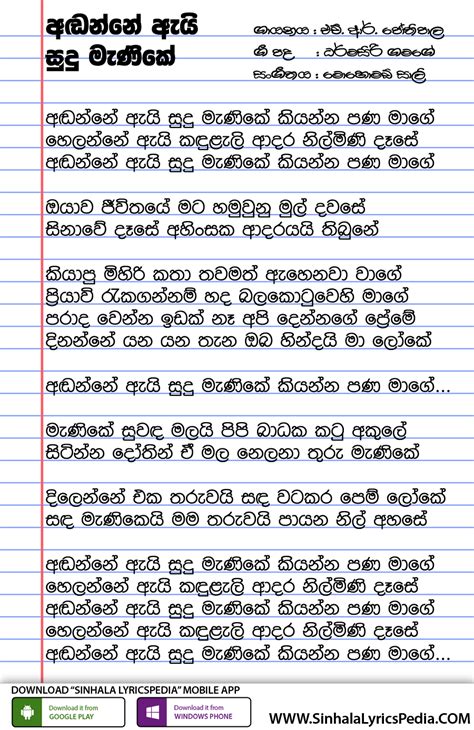 අඬන්නේ ඇයි
සුදු මැණිකේ
ගායනය : එච්. ආර්. ජෝතිපාල
ගී පද : ධර්මසිරි ගමගේ
සංගීතය : මොහොමඩ් සාලි
අඬන්නේ ඇයි සුදු මැණිකේ කියන්න පණ මාගේ
හෙලන්නේ ඇයි කඳුළැලි ආදර නිල්මිණි දෑසේ
අඬන්නේ ඇයි සුදු මැණිකේ කියන්න පණ මාගේ
ඔයාව ජීවිතයේ මට හමුවුනු මුල් දවසේ
සිනාවේ දෑසේ අහිංසක ආදරයයි තිබුනේ
කියාපු මිහිරි කතා තවමත් ඇහෙනවා වාගේ
ප්‍රියාවි රැකගන්නම් හද බලකොටුවෙහි මාගේ
පරාද වෙන්න ඉඩක් නෑ අපි දෙන්නගේ ප්‍රේමේ
දිනන්නේ යන යන තැන ඔබ හින්දයි මා ලෝකේ
අඬන්නේ ඇයි සුදු මැණිකේ කියන්න පණ මාගේ...
මැණිකේ සුවඳ මලයි පිපි බාධක කටු අකුලේ
සිටින්න දෝතින් ඒ මල නෙලනා තුරු මැණිකේ
දිලෙන්නේ එක තරුවයි සඳ වටකර පෙම් ලෝකේ
සඳ මැණිකෙයි මම තරුවයි පායන නිල් අහසේ
අඬන්නේ ඇයි සුදු මැණිකේ කියන්න පණ මාගේ
හෙලන්නේ ඇයි කඳුළැලි ආදර නිල්මිණි දෑසේ
අඬන්නේ ඇයි සුදු මැණිකේ කියන්න පණ මාගේ
හෙලන්නේ ඇයි කඳුළැලි ආදර නිල්මිණි දෑසේ
අඬන්නේ ඇයි සුදු මැණිකේ කියන්න පණ මාගේ...
DOWNLOAD “SINHALA LYRICSPEDIA” MOBILE APP
Download it from
GOOGLE PLAY
Download it from
WINDOWS PHONE
WWW.SinhalaLyricsPedia.COM